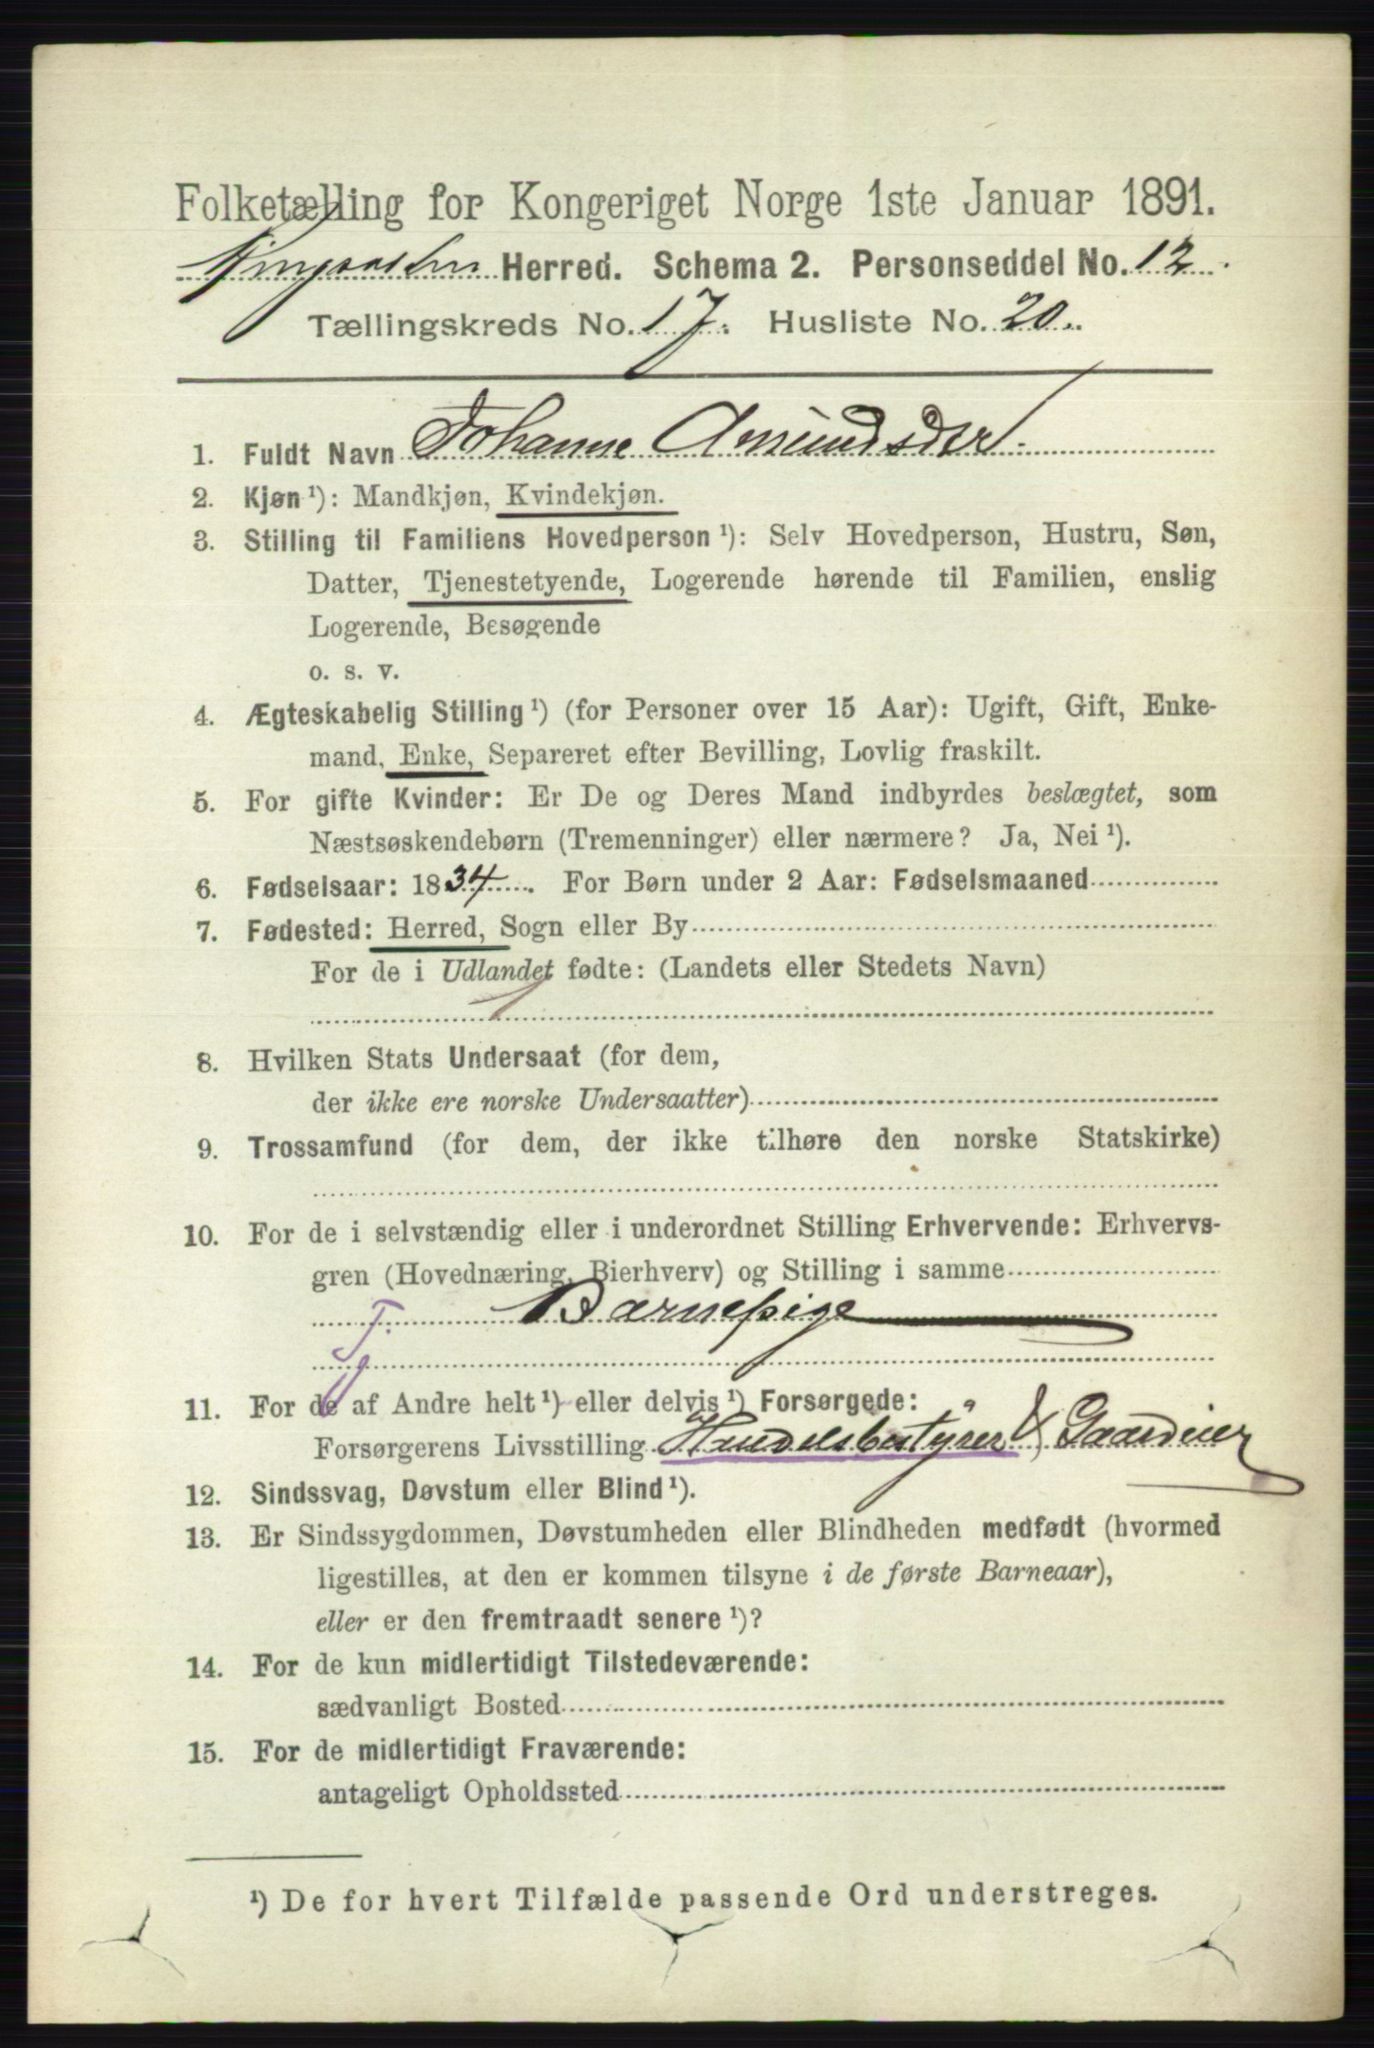 Folketælling for Kongeriget Norge 1ste Januar 1891.
Ringsaker Herred. Schema 2. Personseddel No. 12.
Tællingskreds No. 17. Husliste No. 20.
1. Fuldt Navn Johanne Amundsdtr.
2. Kjøn ¹): Mandkjøn, Kvindekjøn.
3. Stilling til Familiens Hovedperson ¹): Selv Hovedperson, Hustru, Søn,
Datter, Tjenestetyende, Logerende hørende til Familien, enslig
Logerende, Besøgende
o. s. v.
4. Ægteskabelig Stilling ¹) (for Personer over 15 Aar): Ugift, Gift, Enke-
mand, Enke, Separeret efter Bevilling, Lovlig fraskilt.
5. For gifte Kvinder: Er De og Deres Mand indbyrdes beslægtet, som
Næstsøskendebørn (Tremenninger) eller nærmere? Ja, Nei ¹).
6. Fødselsaar: 1834. For Børn under 2 Aar: Fødselsmaaned
7. Fødested: Herred, Sogn eller By
For de i Udlandet fødte: (Landets eller Stedets Navn)
8. Hvilken Stats Undersaat (for dem,
der ikke ere norske Undersaatter)
9. Trossamfund (for dem, der ikke tilhøre den norske Statskirke)
10. For de i selvstændig eller i underordnet Stilling Erhvervende: Erhvervs-
gren (Hovednæring, Bierhverv) og Stilling i samme
Barnepige
Tj.
11. For de af Andre helt ¹) eller delvis ¹) Forsørgede:
Forsørgerens Livsstilling Handelsbestyrer & Gaardeier
12. Sindssvag, Døvstum eller Blind ¹).
13. Er Sindssygdommen, Døvstumheden eller Blindheden medfødt (hvormed
ligestilles, at den er kommen tilsyne i de første Barneaar),
eller er den fremtraadt senere ¹)?
14. For de kun midlertidigt Tilstedeværende:
sædvanligt Bosted
15. For de midlertidigt Fraværende:
antageligt Opholdssted
¹) De for hvert Tilfælde passende Ord understreges.